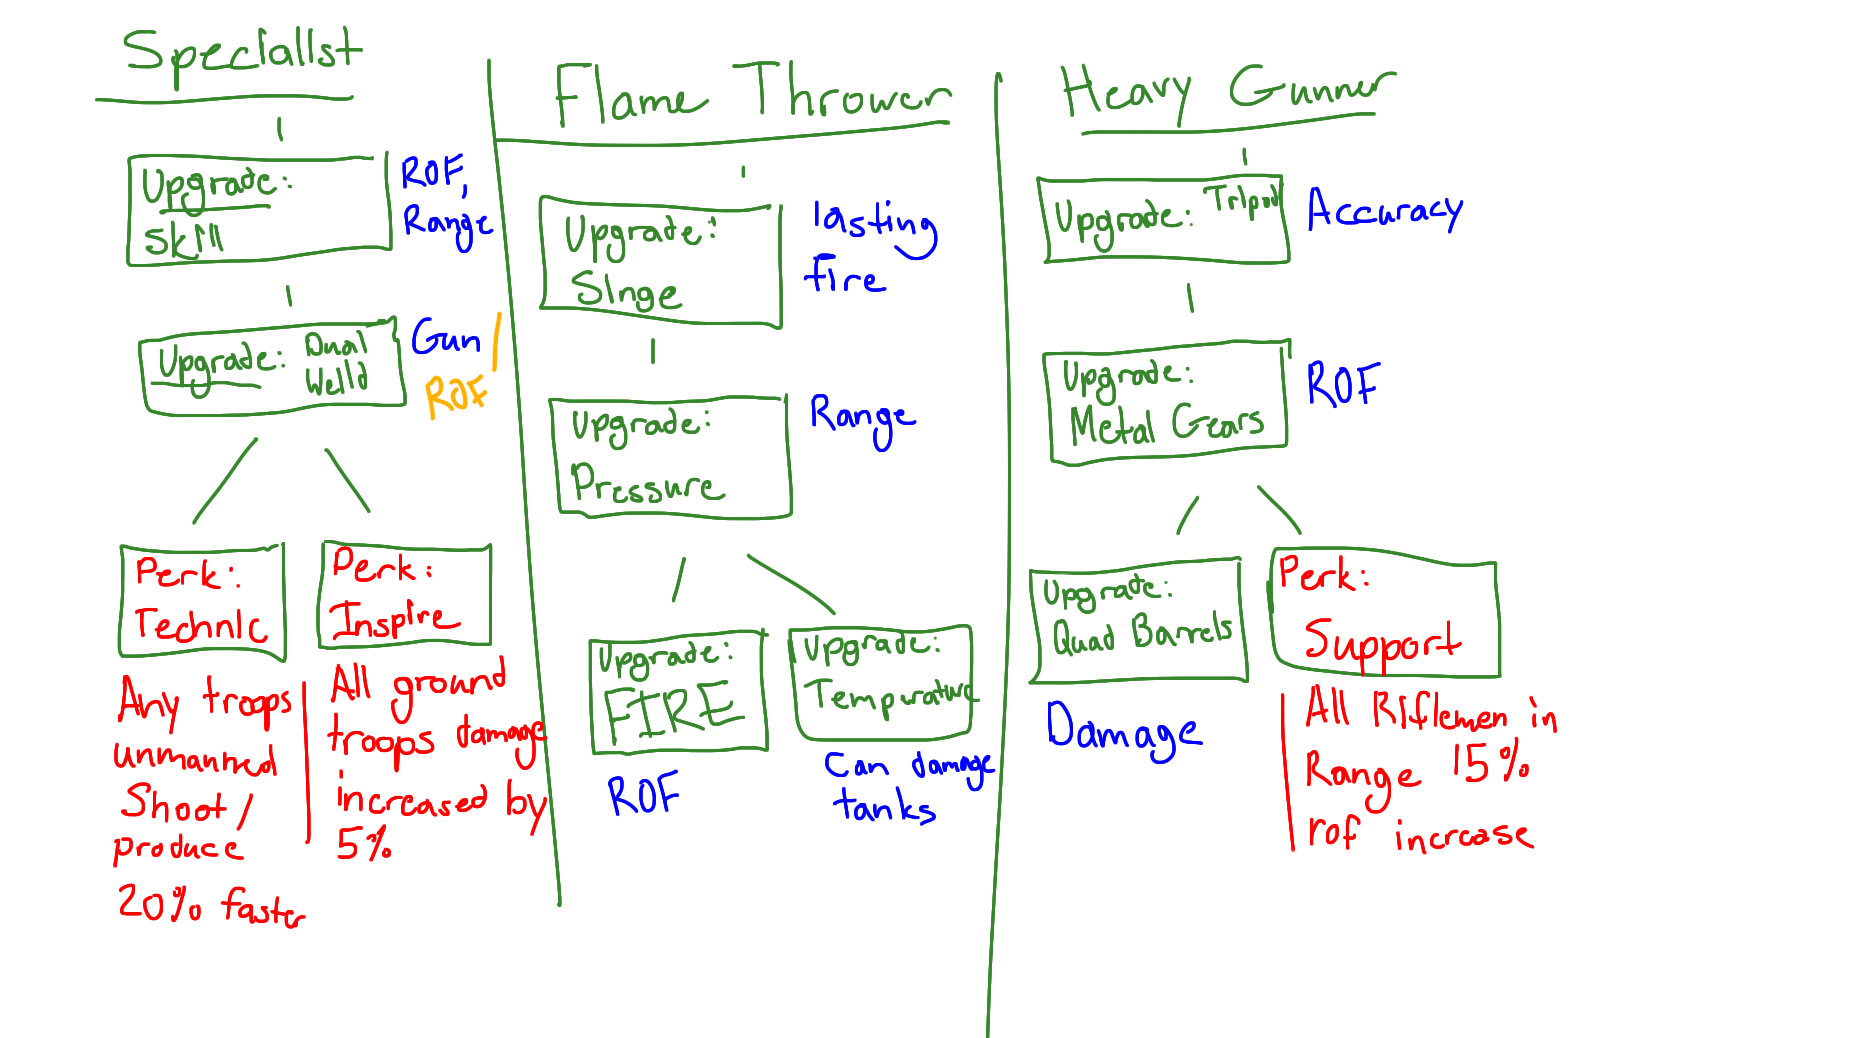 Specialist
Upgrade:
Skill
ROF,
Range
Upgrade: Dual
Weild
Gun /
ROF
Perk:
Technic
Any troops
unmanned
Shoot /
produce
20% faster
Perk:
Inspire
All ground
troops damage
increased by
5%
Flame Thrower
Upgrade:
Singe
lasting
fire
Upgrade:
Pressure
Range
Upgrade:
FIRE
ROF
Upgrade:
Tempurature
Can damage
tanks
Heavy Gunner
Upgrade: Tripod
Accuracy
Upgrade:
Metal Gears
ROF
Upgrade:
Quad Barrels
Damage
Perk:
Support
All Riflemen in
Range 15%
rof increase